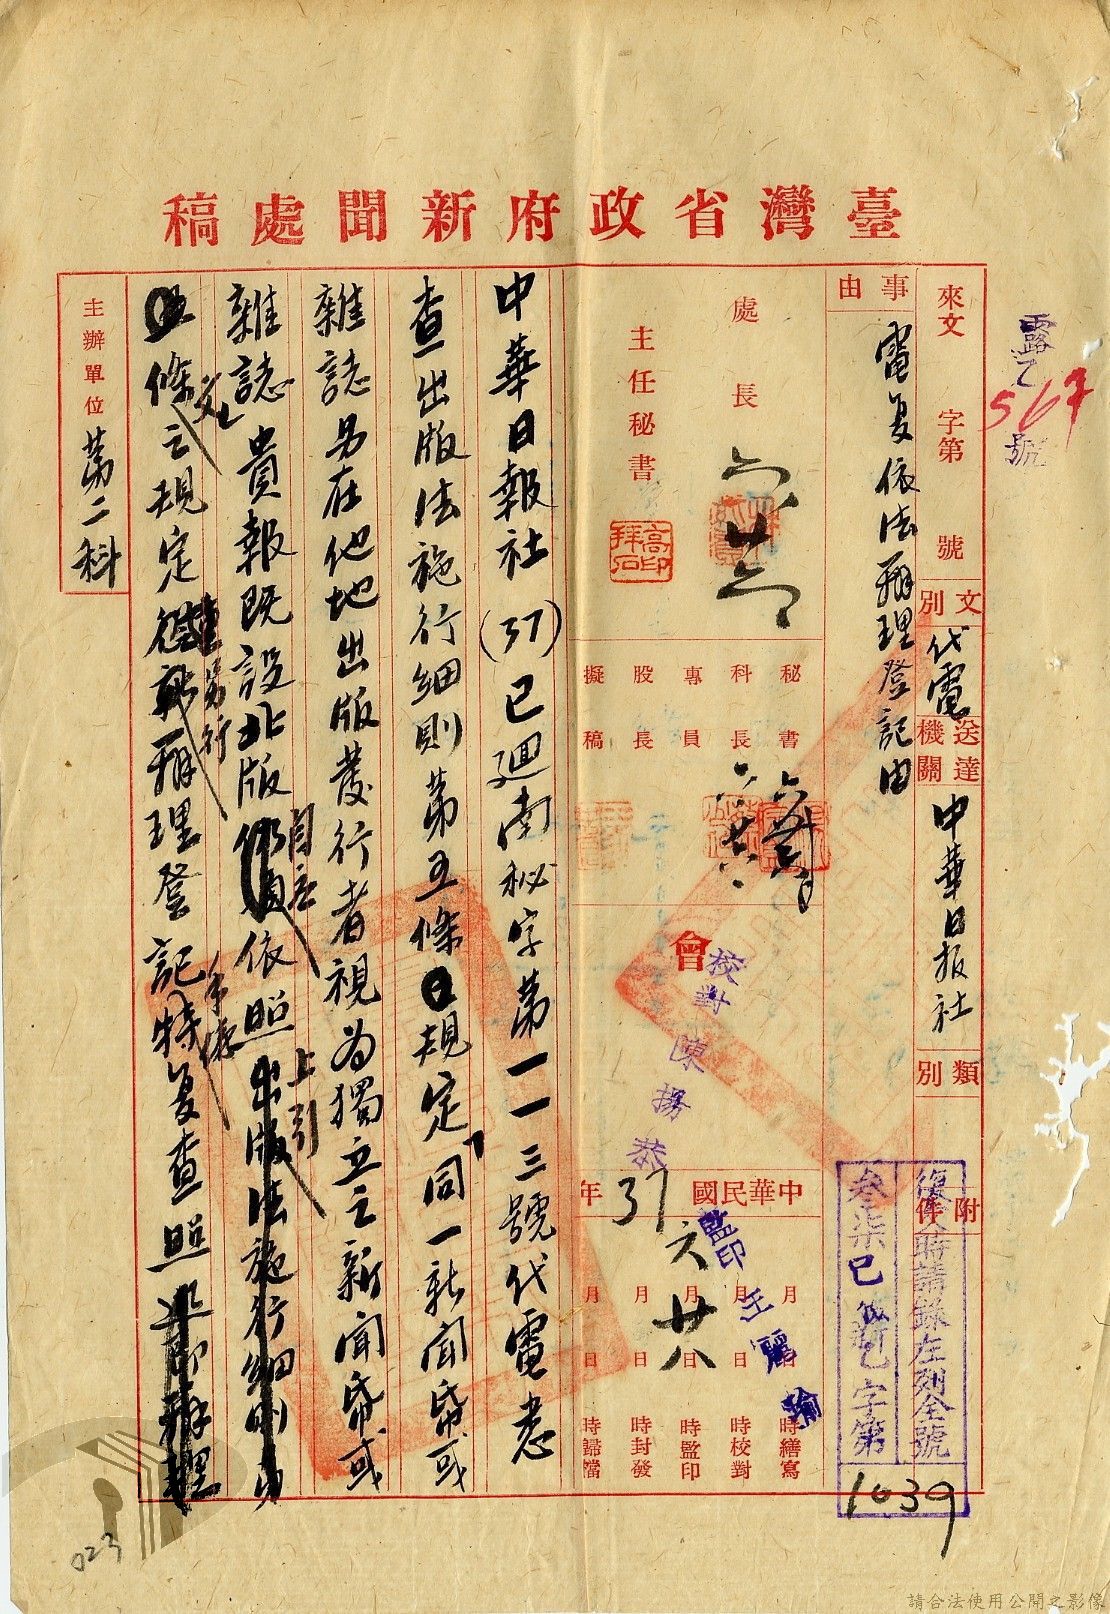 臺灣省政府新聞處稿
露乙 567 號
來文 字第 號
文別 代電
送達機關 中華日报社
類別
附件
事由
電复依法辦理登記由
處長
主任秘書
高印拜石
秘書
科長
專員
股長
擬稿
會
校對 陳揚恭
監印 王麗瑜
中華民國 37 年
六月廿八
月 日 時繕寫
月 日 時校對
月 日 時監印
月 日 時封發
月 日 時歸檔
復文時請錄左列全號
叁柒巳 新乙字第 1039
中華日報社(37)巳迴南秘字第一一三號代電悉
查出版法施行細則第五條規定「同一新聞帋或
雜誌另在他地出版發行者視为獨立之新聞帋或
雜誌」貴報既設北版自應依照上引
條文之規定另行辦理登記手續特复查照
主辦單位 第二科
023
請合法使用公開之影像